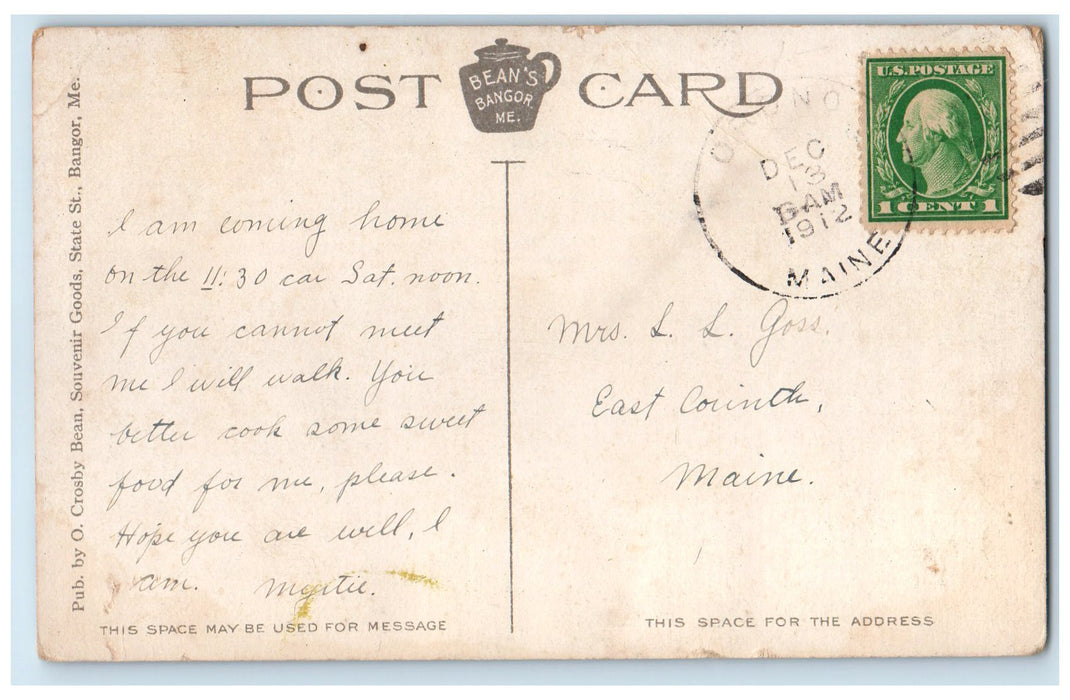 POST CARD
BEAN'S
BANGOR,
ME.
U.S. POSTAGE
1 CENT 1
DEC
13
6 AM
1912
MAINE
Pub. by O. Crosby Bean, Souvenir Goods, State St., Bangor, Me.
I am coming home
on the 11:30 car Sat. noon.
If you cannot meet
me I will walk. You
better cook some sweet
food for me, please.
Hope you are well, I
am. Myrtie.
THIS SPACE MAY BE USED FOR MESSAGE
Mrs. L. L. Goss.
East Corinth,
Maine.
THIS SPACE FOR THE ADDRESS